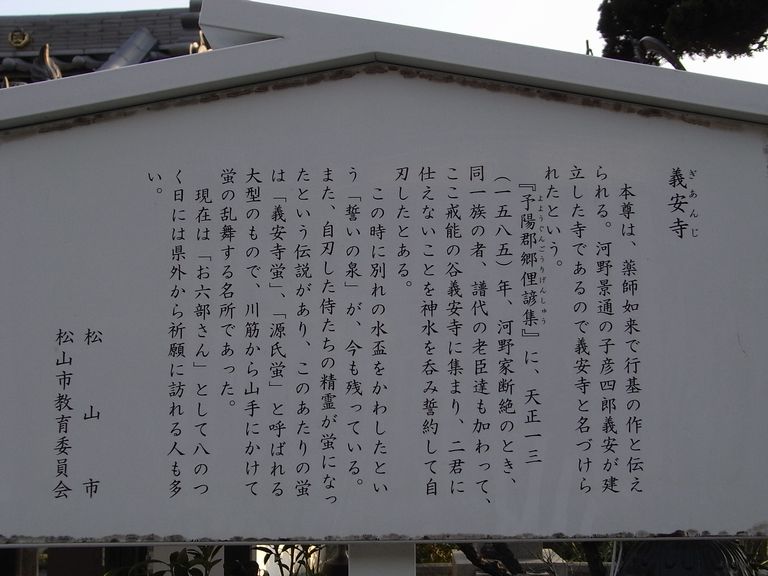 ぎあんじ
義安寺
本尊は、薬師如来で行基の作と伝え
られる。河野景通の子彦四郎義安が建
立した寺であるので義安寺と名づけら
れたという。
よようぐんごうりげんしゅう
『予陽郡郷俚諺集』に、天正一三
(一五八五)年、河野家断絶のとき、
同一族の者、譜代の老臣達も加わって、
ここ戒能の谷義安寺に集まり、二君に
仕えないことを神水を呑み誓約して自
刃したとある。
この時に別れの水盃をかわしたとい
う「誓いの泉」が、今も残っている。
また、自刃した侍たちの精霊が蛍になっ
たという伝説があり、このあたりの蛍
は「義安寺蛍」、「源氏蛍」と呼ばれる
大型のもので、川筋から山手にかけて
蛍の乱舞する名所であった。
現在は「お六部さん」として八のつ
く日には県外から祈願に訪れる人も多
い。
松山市
松山市教育委員会